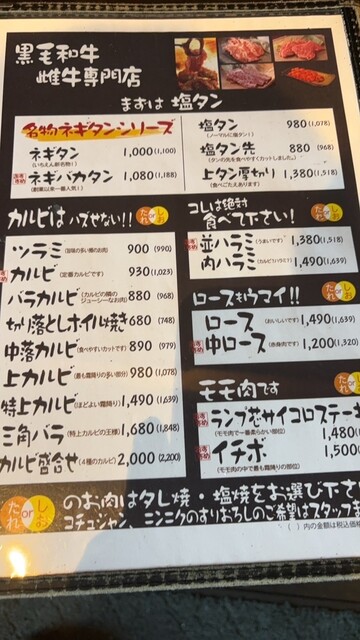 黒毛和牛
雌牛専門店
まずは 塩タン
名物ネギタンシリーズ
ネギタン 1,000(1,100)
(いちえん創名物!)
ネギバカタン 1,080(1,188)
(創業以来一番人気!)
塩タン 980(1,078)
(ノーマルに塩タン!)
塩タン先 880(968)
(タンの先を食べやすくカットしました。)
上タン厚切り 1,380(1,518)
(食べごたえあります)
カルビは ハズせない!! たれ or しお
ツラミ (旨味の多い頬のお肉) 900(990)
カルビ (定番カルビです) 930(1,023)
バラカルビ (カルビの隣のジューシーなお肉) 880(968)
切り落としホイル焼き 680(748)
中落カルビ (食べやすいカットです) 890(979)
上カルビ (最も霜降りの多い部分) 980(1,078)
特上カルビ (ほどよい霜降り) 1,490(1,639)
三角バラ (特上カルビの王様) 1,680(1,848)
カルビ盛合せ (4種のカルビ) 2,000(2,200)
コレは絶対食べて下さい! たれ or しお
並ハラミ (うまいです) 1,380(1,518)
内ハラミ (カルビ?ハラミ?) 1,490(1,639)
ロースもウマイ!! たれ or
ロース (おいしいです) 1,490(1,639)
中ロース (赤身肉です) 1,200(1,320)
モモ肉です たれ
ランプ芯サイコロステー
(モモ肉で一番柔らかい部位) 1,480(
イチボ 1,500(
(モモ肉の中で最も霜降りの部位)
たれ or しお のお肉はタレ焼・塩焼をお選び下さ
コチュジャン、ニンニクのすりおろしのご希望はスタッフま
( )内の金額は税込価格